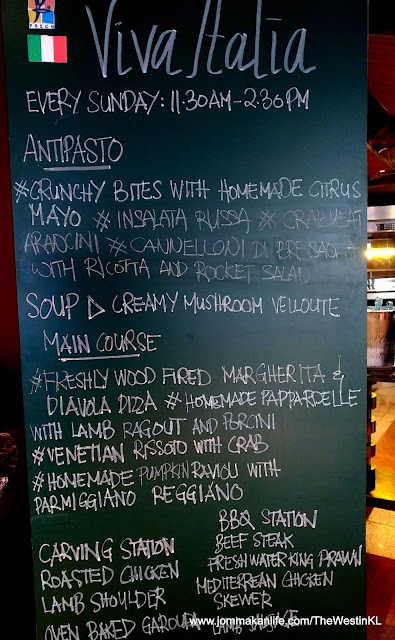 PREGO
Viva Italia
EVERY SUNDAY: 11.30AM-2.30PM
ANTIPASTO
#CRUNCHY BITES WITH HOMEMADE CITRUS
MAYO # INSALATA RUSSA # CRAB MEAT
ARANCINI # CANNELLONI DI BRESAOLA
WITH RICOTTA AND ROCKET SALAD
SOUP ▷ CREAMY MUSHROOM VELLOUTE
MAIN COURSE
#FRESHLY WOOD FIRED MARGHERITA &
DIAVOLA PIZZA # HOMEMADE PAPPARDELLE
WITH LAMB RAGOUT AND PORCINI
#VENETIAN RISSOTO WITH CRAB
#HOMEMADE PUMPKIN RAVIOLI WITH
PARMIGGIANO REGGIANO
CARVING STATION
ROASTED CHICKEN
LAMB SHOULDER
OVEN BAKED GAROUPA
BBQ STATION
BEEF STEAK
FRESH WATER KING PRAWN
MEDITERREAN CHICKEN
SKEWER
LAMB
www.jommakanlife.com/TheWestinKL